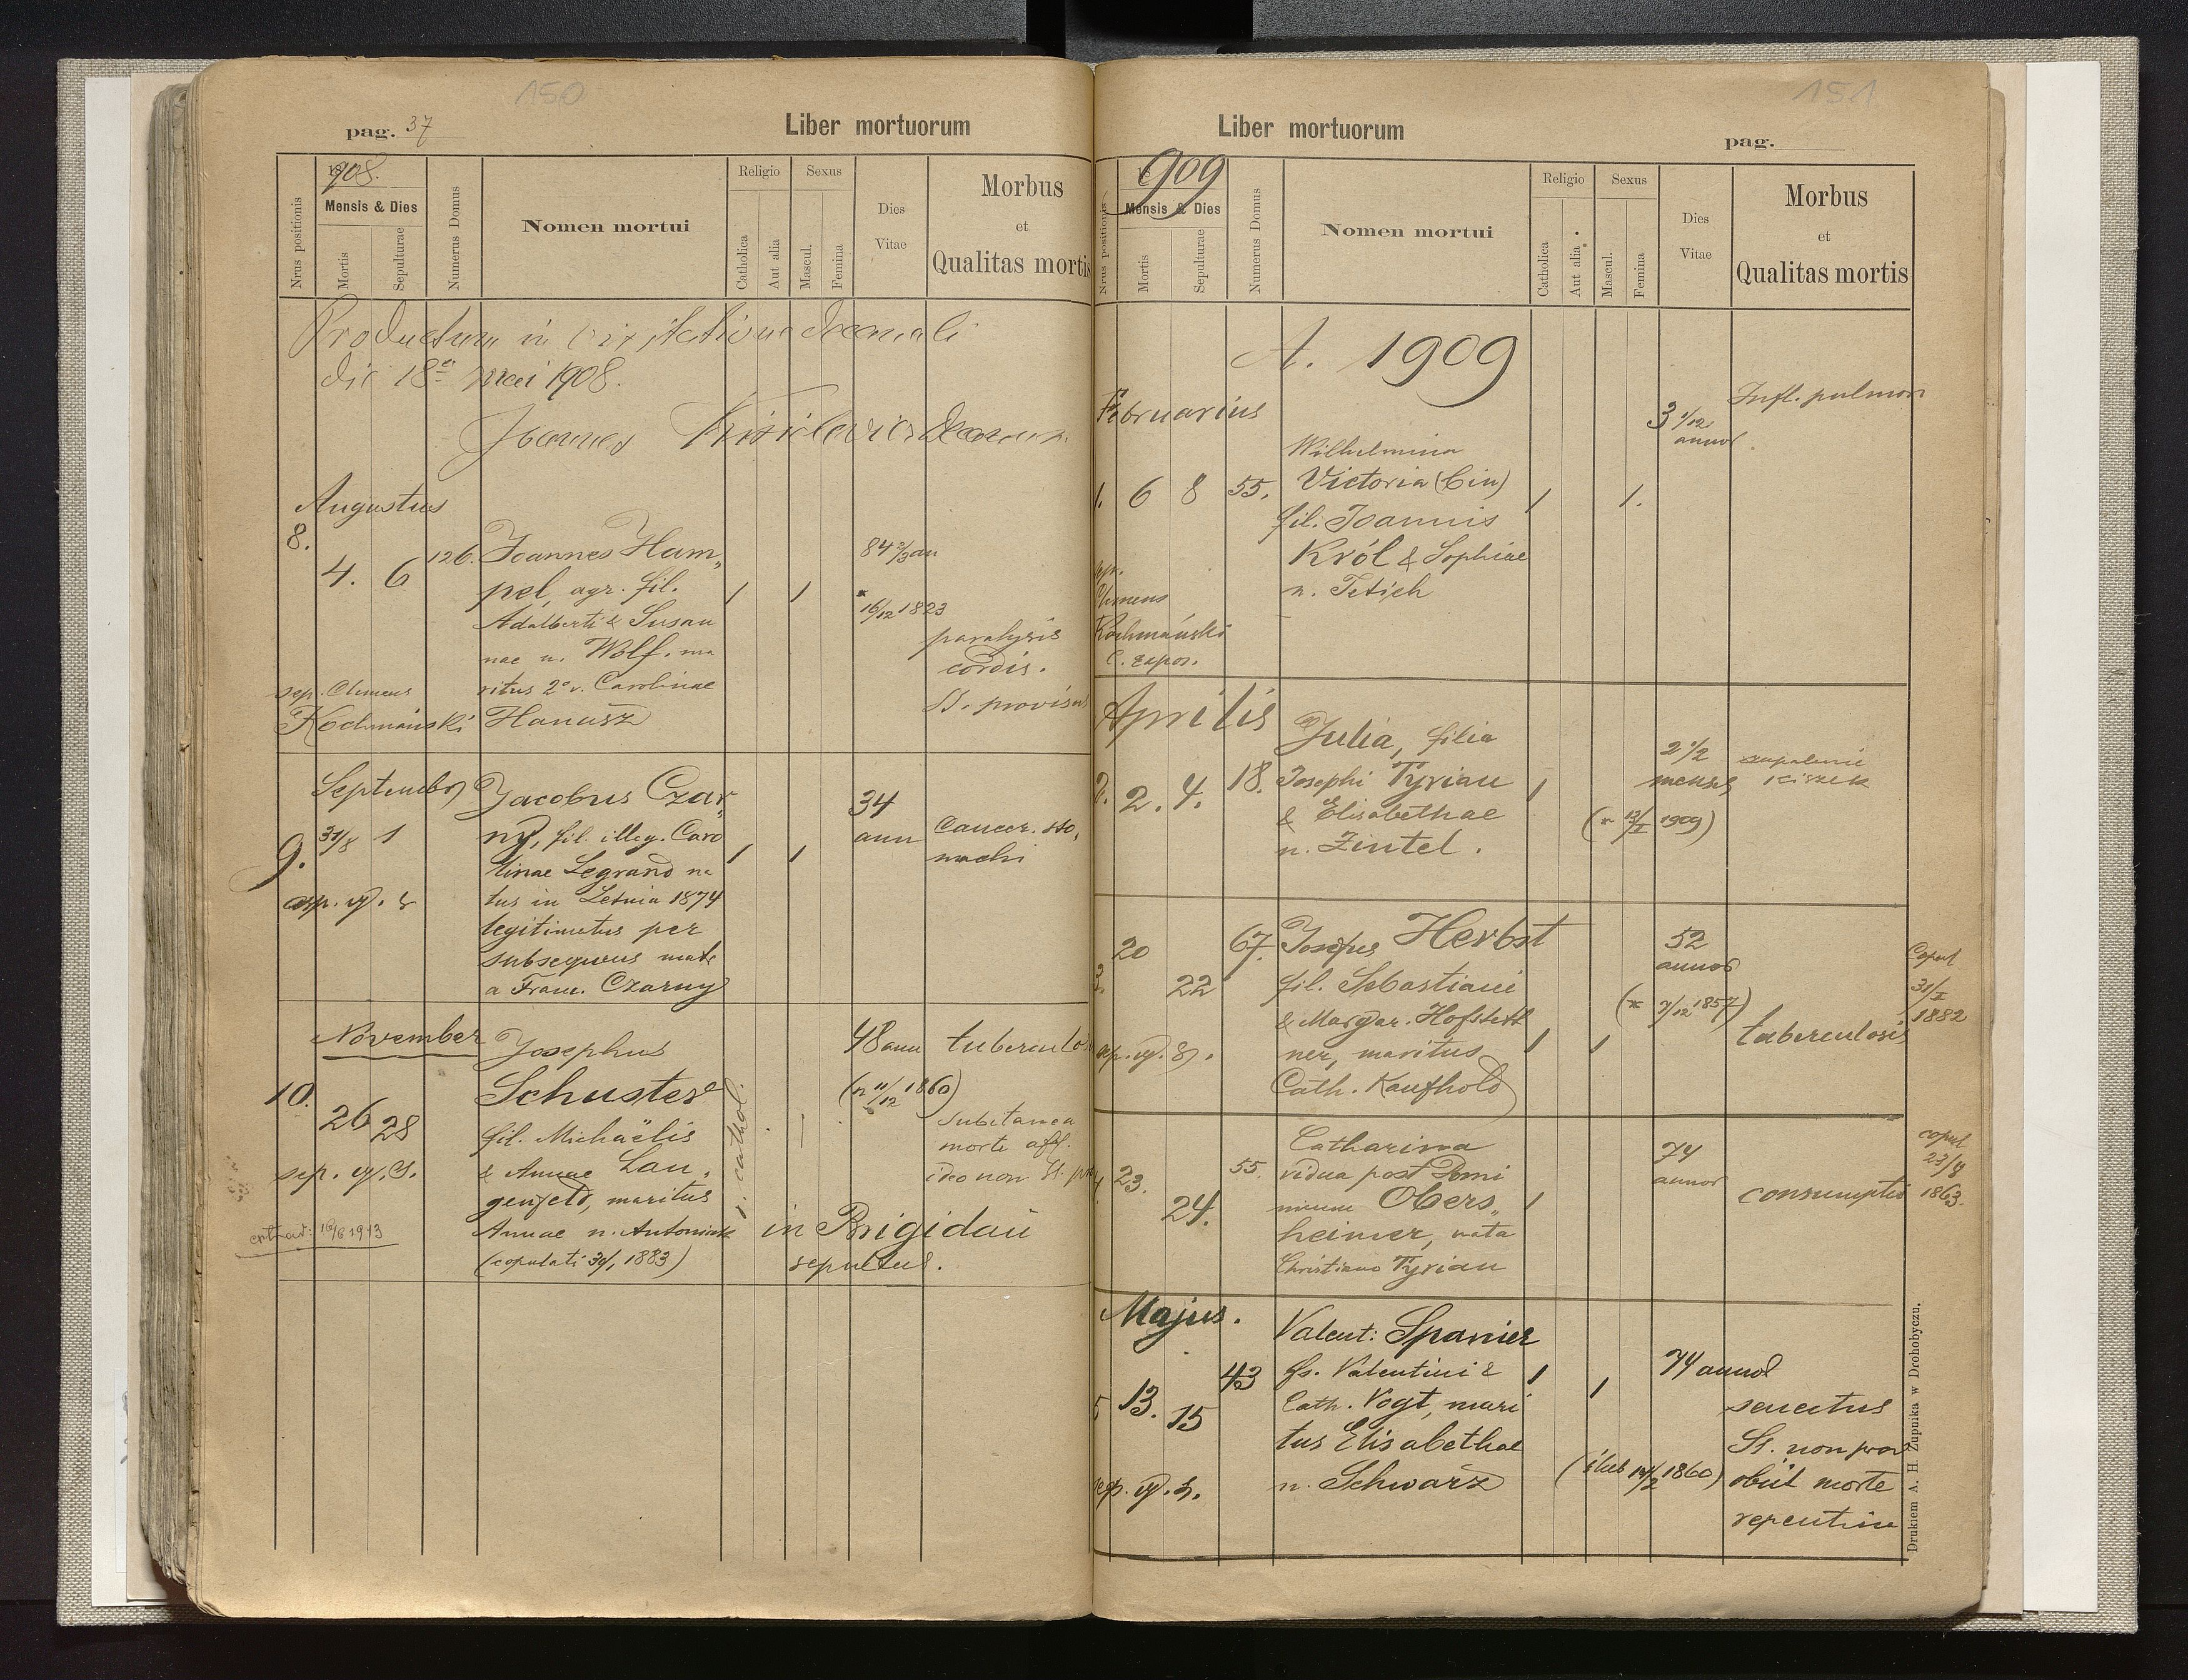 150
pag. 37
Liber mortuorum
1908.
Nrus positionis
Mensis & Dies
Mortis
Sepulturae
Numerus Domus
Nomen mortui
Religio
Catholica
Aut alia
Sexus
Mascul.
Femina
Dies
Vitae
Morbus
et
Qualitas mortis
Productum in visitatione decanali
die 18a Mai 1908.
Joannes
Augustus
8.
4. 6 126. Joannes Ham„
pel, agr. fil.
Adalberti & Susan
nae n. Wolf. ma
ritus 2o v. Carolinae
Hanusz
1 1
84 2/3 an
* 16/12 1823
paralysis
cordis.
SS. provisus
sep. Clemens
Kochmański
September
9. 31/8 1
Jacobus Czar„
ny, fil. illeg. Caro
linae Legrand na
tus in Letnia 1874
legitimatus per
subsequens matr
a Franc. Czarny
1 1
34
ann
Cancer. sto„
machi
November
10.
26 28
Josephus
Schuster
fil. Michaëlis
& Annae Lan„
genfeld, maritus
Annae n. Antoniak
(copulati 30/1 1883)
r. cathol.
48 ann
(n 11/12 1860)
tuberculos
Subitanea
morte aff.
ideo non SS. pr
in Brigidau
sepultus.
16/6 1943
151
Liber mortuorum
pag.
1909
Nrus positionis
Mensis & Dies
Mortis
Sepulturae
Numerus Domus
Nomen mortui
Religio
Catholica
Aut alia
Sexus
Mascul.
Femina
Dies
Vitae
Morbus
et
Qualitas mortis
A. 1909
Februarius
1. 6 8 55.
Wilhelmina
Victoria (bin)
fil. Joannis
Król & Sophiae
n. Tetich
1 1.
3 1/12
annor
Infl. pulmon
Clemens
Kochmański
C. expos.
Aprilis
2. 2. 4. 18.
Julia, filia
Josephi Tyrian
& Elisabethae
n. Zintel.
1
2 1/2
mensis
(* 13/I 1909)
zapalenie
kiszek
3. 20 22 67.
Josephus Herbst
fil. Sebastiani
& Margar. Hofstett
ner, maritus
Cath. Kaufhold
1 1
52
annor
(* 7/12 1857)
tuberculosis
Copul
31/I
1882
4. 23. 24. 55.
Catharina
vidua post Domi
nicum Obers„
heimer, nata
Christiano Tyrian
1
74
annor
consumptio
copul
23/4
1863.
Majus.
5 13. 15 43
Valent: Spanier
fs. Valentini &
Cath. Vogt, mari
tus Elisabethae
n. Schwarz
1 1
74 annor
(ślub 14/2 1860)
senectus
SS. non prov
obiit morte
repentina
Drukiem A. H. Żupnika w Drohobyczu.